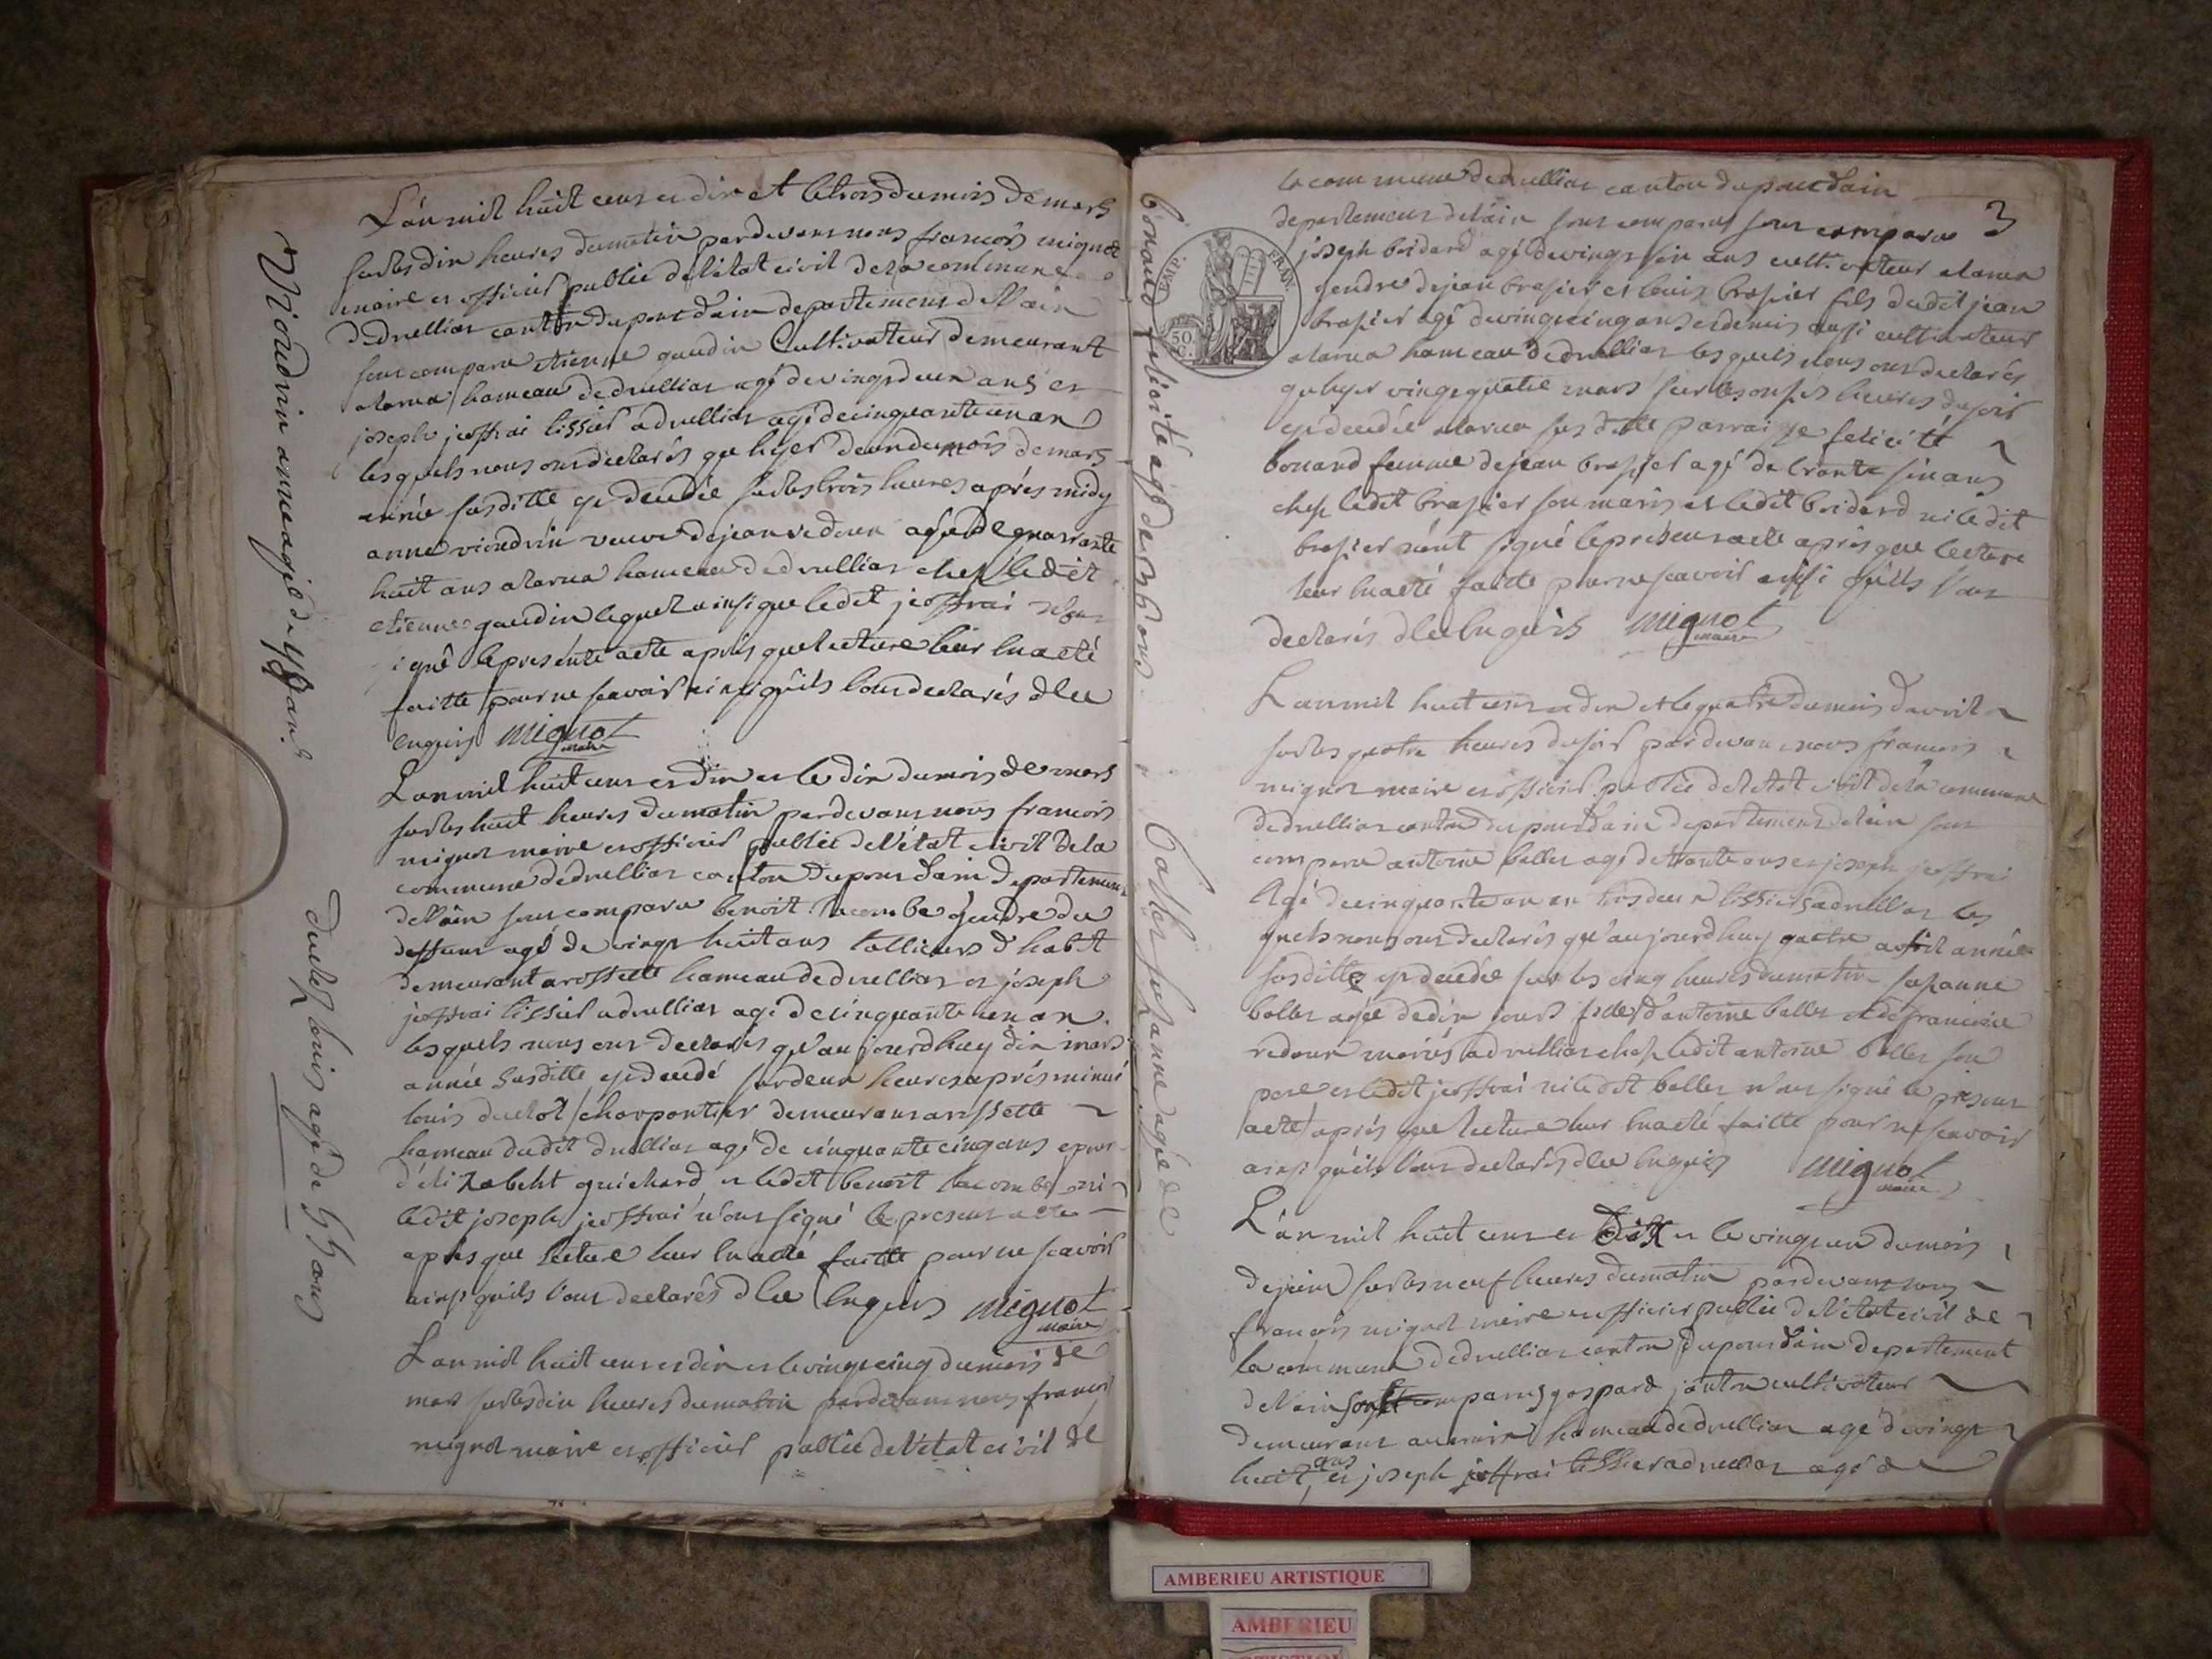 L'an mil huit cens et dix et le trois du mois de mars
sur les dix heures du matin pardevans nous francois mignot
maire et officier public de l'état civil de la commune
de druilliat canton du pont d'ain departement de l'ain
sont comparu etienne gaudin Cultivateur demeurant
a larua hameau de druilliat agé de vingt deux ans et
joseph jeoffrai tissier a druilliat agé de cinquante un an
lesquels nous ont declarés que hyer deux du mois de mars
année susditte est decedée sur les trois heures après midy
anne vioudrin veuve de jean redoux agée de quarrante
huit ans a larua hameau de druilliat chez ledit
etienne gaudin lequel ainsi que ledit jeoffrai n'ont
signé le presente acte après que lecture leur en a eté
faitte pour ne scavoir ainsi qu'ils l'ont declarés de ce
enquis mignot
maire
Vioudrin anne agée de 48 ans
L'an mil huit cens et dix et le dix du mois de mars
sur les huit heures du matin pardevans nous francois
mignot maire et officier public de l'état civil de la
commune de druilliat canton du pont d'ain departement
de l'ain sont comparu benoit lacombe gendre du
deffunt agé de vingt huit ans tallieurs d'habit
demeurant a rossette hameau de druilliat et joseph
jeoffrai tissier a druilliat agé de cinquante un an
lesquels nous ont declarés qu'aujourdhuy dix mars
année susditte est decedé sur deux heures après minui
louis duclot charpentier demeurant a rossette
hameau dudit druilliat agé de cinquante cinq ans epoux
d'elizabeht guichard et ledit benoit lacombe ni
ledit joseph jeoffrai n'ont signé le present acte
après que lecture leur en a eté faitte pour ne scavoir
ainsi qu'ils l'ont declarés de ce enquis mignot
maire
duclot louis agé de 55 ans
L'an mil huit cens et dix et le vingt cinq du mois de
mars sur les dix heures du matin pardevans nous francois
mignot maire et officier public de l'état civil de
3
la commune de druilliat canton du pont d'ain
departement de l'ain sont comparus sont comparu
joseph boidard agé de vingt six ans cultivateur a larua
gendre de jean brasier et louis brasier fils dudit jean
brasier agé de vingt cinq ans et demis aussi cultivateur
a larua hameau de druilliat lesquels nous ont declarés
que hyer vingt quatre mars sur les onses heures du soir
est decedée a larua susditte parroisse felicité
bonand femme de jean brasier agé de trante six ans
chez ledit brasier son maris et ledit boidard ni ledit
brasier n'ont signé le present acte après que lecture
leur en a eté faitte pour ne scavoir ainsi qu'ils l'ont
declarés de ce enquis mignot
maire
EMP. FRAN.
50 C.
bonand felicité agé de 36 ans
L'an mil huit cens et dix et le quatre du mois d'avril
sur les quatre heures du soir pardevans nous francois
mignot maire et officier public de l'etat civil de la commune
de druilliat canton du pont d'ain departement de l'ain sont
comparu antoine ballet agé de trante ans et joseph jeoffrai
agé de cinquante un an tous deux tissiers a druilliat les
quels nous ont declarés qu'aujourdhuy quatre avril année
susditte est decedée sur les cinq heures du matin suzanne
ballet agée de dix jours fille d'antoine ballet et de francoise
redoux mariés a druilliat chez ledit antoine ballet son
pere et ledit jeoffrai ni ledit ballet n'ont signé le present
acte après que lecture leur en a eté faitte pour ne scavoir
ainsi qu'ils l'ont declarés de ce enquis mignot
maire
ballet suzanne agée de
L'an mil huit cens et dix et le vingt un du mois
de juin sur les neuf heures du matin pardevans nous
francois mignot maire et officier public de l'état civil de
la commune de druilliat canton du pont d'ain departement
de l'ain sont comparus gaspard janton cultivateur
demeurant hameau de druilliat agé de vingt
huit ans et joseph jeoffrai tissier a druilliat agé de
AMBERIEU ARTISTIQUE
AMBERIEU